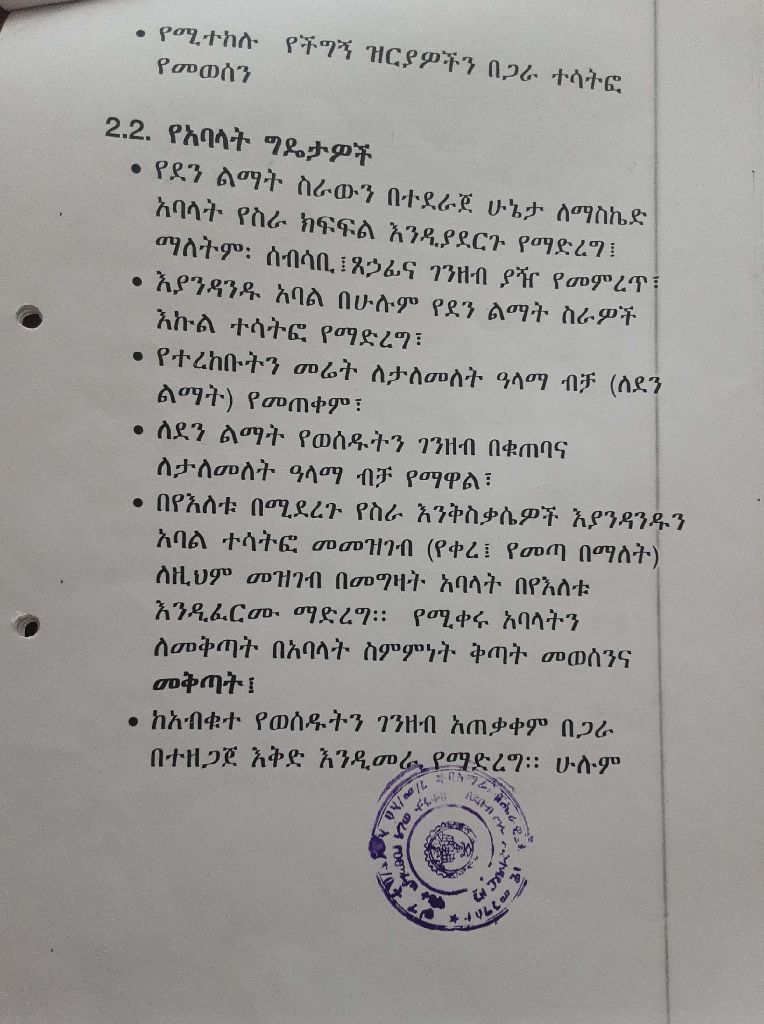 • የሚተከሉ የችግኝ ዝርያዎችን በጋራ ተሳትፎ
የመወሰን
2.2. የአባላት ግዴታዎች
• የደን ልማት ስራውን በተደራጀ ሁኔታ ለማስኬድ
አባላት የስራ ክፍፍል እንዲያደርጉ የማድረግ፤
ማለትም፡ ሰብሳቢ፤ጸኃፊና ገንዘብ ያዥ የመምረጥ፣
• እያንዳንዱ አባል በሁሉም የደን ልማት ስራዎች
እኩል ተሳትፎ የማድረግ፣
• የተረከቡትን መሬት ለታለመለት ዓላማ ብቻ (ለደን
ልማት) የመጠቀም፣
• ለደን ልማት የወሰዱትን ገንዘብ በቁጠባና
ለታለመለት ዓላማ ብቻ የማዋል፣
• በየእለቱ በሚደረጉ የስራ እንቅስቃሴዎች እያንዳንዱን
አባል ተሳትፎ መመዝገብ (የቀረ፤ የመጣ በማለት)
ለዚህም መዝገብ በመግዛት አባላት በየእለቱ
እንዲፈርሙ ማድረግ። የሚቀሩ አባላትን
ለመቅጣት በአባላት ስምምነት ቅጣት መወሰንና
መቅጣት፤
• ከአብቁተ የወሰዱትን ገንዘብ አጠቃቀም በጋራ
በተዘጋጀ እቅድ እንዲመራ የማድረግ። ሁሉም